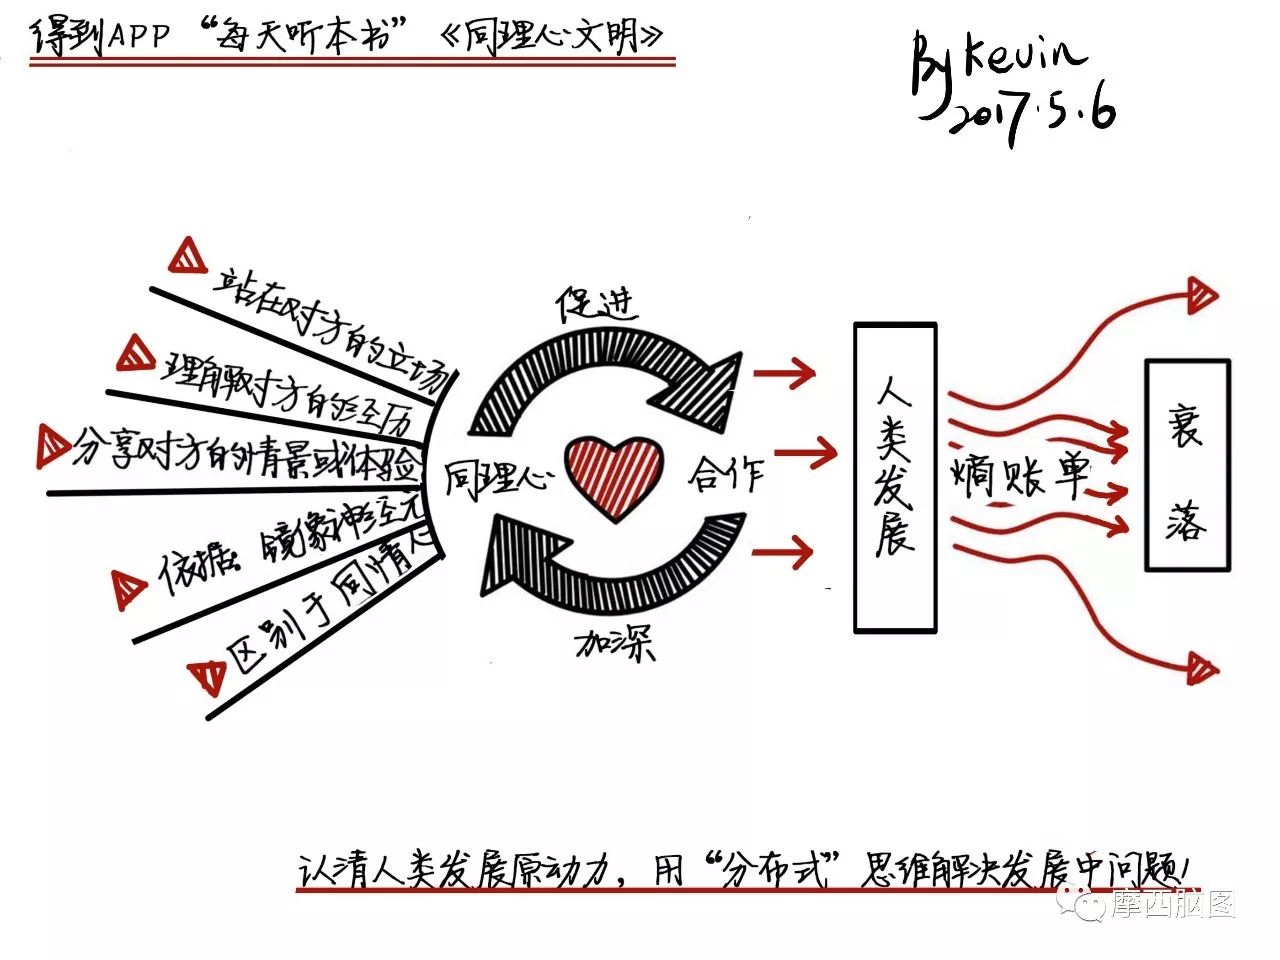 得到APP “每天听本书” 《同理心文明》
By Kevin
2017.5.6
站在对方的立场
理解对方的经历
分享对方的情景或体验
依据：镜像神经元
区别于同情心
促进
同理心
合作
加深
人类发展
熵账单
衰落
认清人类发展原动力，用“分布式”思维解决发展中问题！
摩西脑图